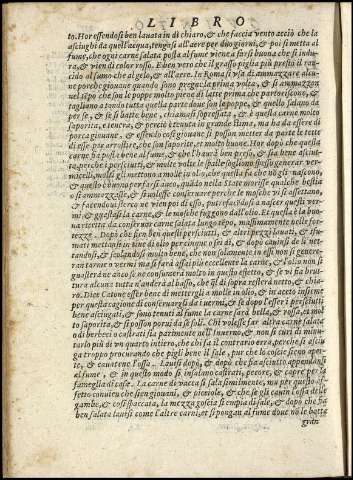 LIBRO
to. Hor essendosi ben lauata in di chiaro, & che faccia vento acciò che la
asciughi da quell'acqua, tengasi all'aere per duo giorni, & poi si metta al
fumo, che ogni carne salata posta al fumo viene a farsi buona che si indu
ra, & vien di color rosso. E ben vero che il grasso piglia più presto il ran
cido al fumo che al gelo, & all'aere. In Roma si vsa di ammazzare alcu
ne porche giouani quando sono pregne la prima volta, & si ammazzano
nel tẽpo che son le poppe molto piene di latte prima che parturiscono, &
tagliano a tondo tutta quella parte doue son le poppe, & quello salano da
per se, & se si batte bene, chiamasi sopressata, & è questa carne molto
saporita, e tenera, & però è tenuta in grande stima, ma ha da essere di
porca giouane, & essendo così giouane si posson metter da parte le tette
di esse per arrostire, che son saporite, et molto buone. Hor dopò che questa
carne sta posta bene al fumo, & che l'haurà ben preso, & sia bene asciut
ta, perche i persciutti, et molte volte le spalle sogliono spesso generar ver-
micelli, molti gli mettono a molle in olio, che questa fa che nõ gli nascono,
& questo è buono per far si anco, quãdo nella state morisse qualche bestia
o si ammazzasse, & si volesse conseruare perche le mosche vi si assettano,
& facendoui sterco ne vien poi di esso, putrefacẽdosi a nascer questi ver-
mi & guastasi la carne, & le mosche fuggono dall'olio. Et questa è la buo
na ricetta da conseruar carne salata luogo tẽpo, massimamente nelle for
tezze. Dopò che sien ben questi persciutti, & altri pezzi lauati, & sfu-
mati mettansi in tine di olio per cinque o sei dì, & dopò cauinsi di lì net-
tandosi, & scolandosi molto bene, che non solamente in essi non si genere-
rantarne o vermi ma si farà assai più eccellente la carne, & l'olio non si
guasterà ne anco se ne consumerà molto in questo effetto, & se vi fia brut
tura alcuna tutta n'anderà al basso, che q̃l di sopra resterà netto, & chia-
ro. Dice Catone esser bene di mettergli a molle in olio, & in aceto insieme
per questa cagiõe di conseruargli da i uermi, & se dopò l'esser i persciutti
bene asciugati, & sono tenuti al fumo la carne sarà bella, & rossa, e mol
to saporita, & si posson poi mangiar da se soli. Chi volesse far altra carne salata
o di berbero o castrati sia parimente nell'inuerno, & non si curi di minuz
zarlo più di vn quarto intiero, che chi fa il contrario erra, perche si asciu
ga troppo procurando che pigli bene il sale, pur che le coscie sieno aper-
te, & cauatene l'osso. Lauisi dopò, & dopò che sia asciutto appendasi
al fumo, & in questo modo si insalano castrati, pecore, & capre per la
famiglia di casa. La carne di vacca si sala similmente, ma per questo ef-
fetto conuien che sien giouani, & picciole, & che se gli cauin l'ossa delle
gambe, & così staccata, la mezza gocciola si empia di sale, & dopò che fia
ben salata lauisi come l'altre carni, et si pongan al fumo doue nõ le batta
gran